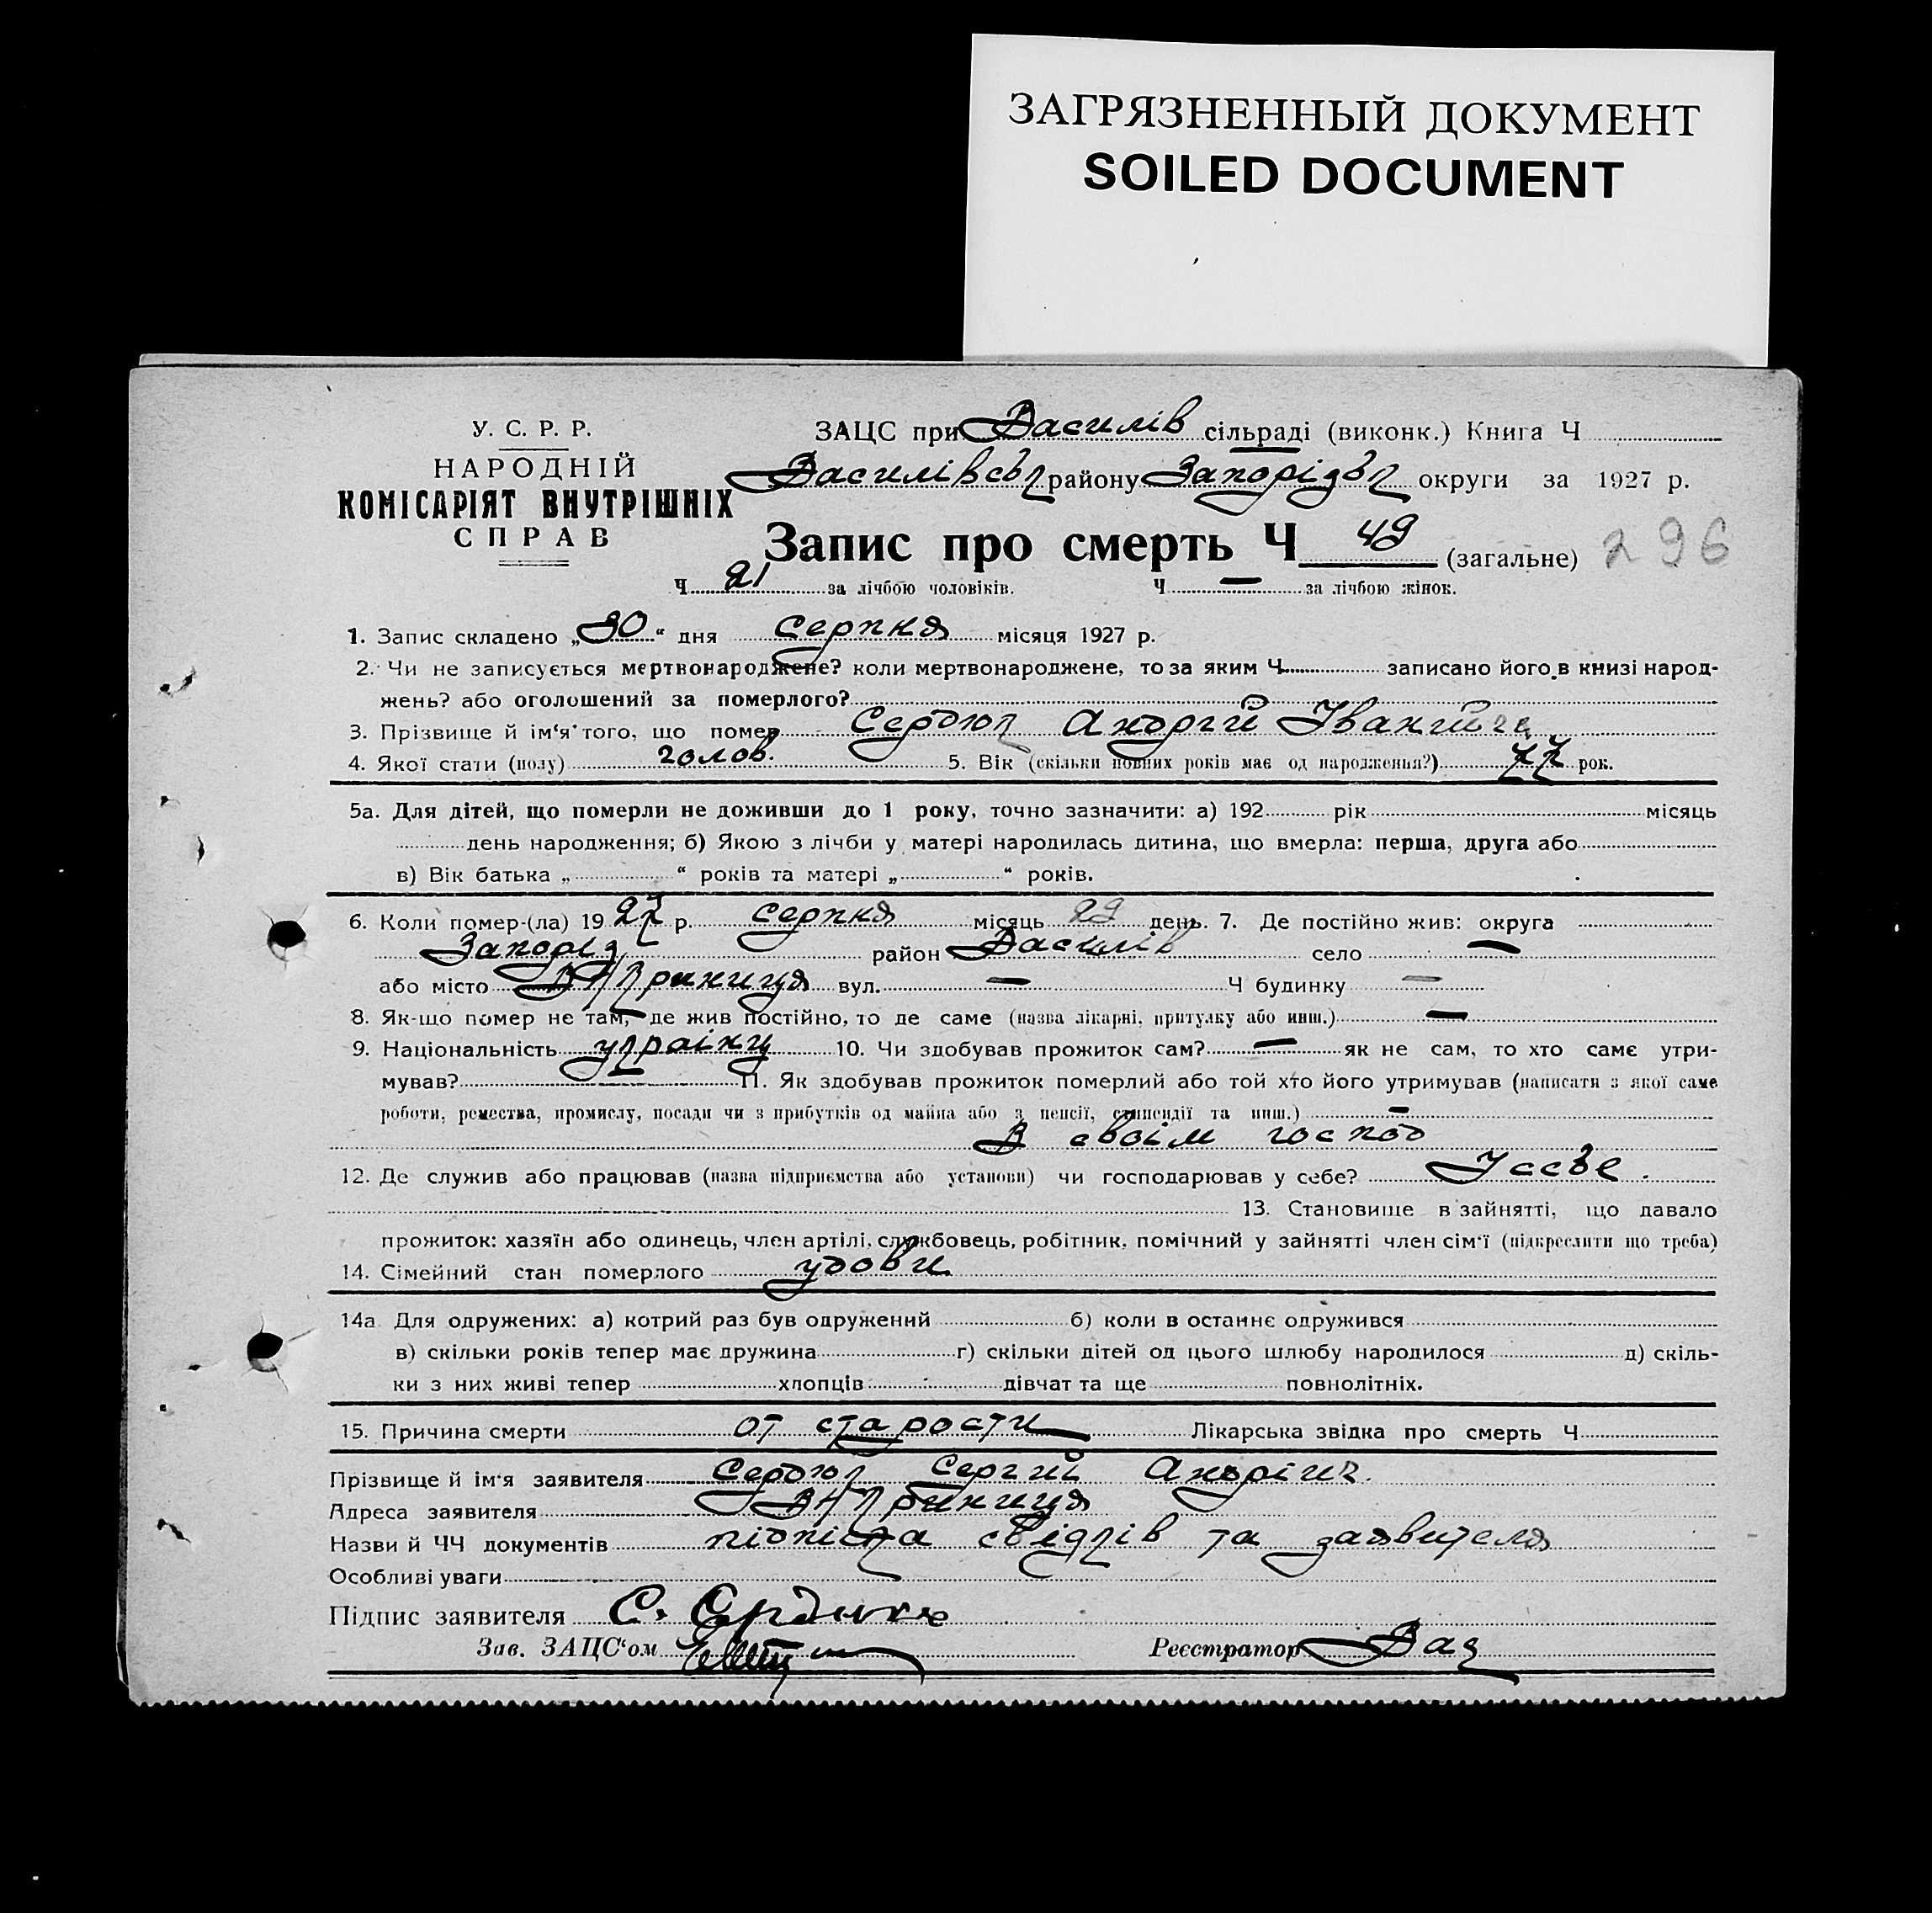 ЗАГРЯЗНЕННЫЙ ДОКУМЕНТ
SOILED DOCUMENT
У. С. Р. Р.
НАРОДНІЙ
КОМІСАРІЯТ ВНУТРІШНІХ
СПРАВ
ЗАЦС при Василів сільраді (виконк.) Книга Ч
Василівськ району Запорізьк округи за 1927 р.
Запис про смерть Ч 49 (загальне) 296
Ч 21 за лічбою чоловіків. Ч — за лічбою жінок.
1. Запис складено „30“ дня серпня місяця 1927 р.
2. Чи не записується мертвонароджене? коли мертвонароджене, то за яким Ч записано його в книзі народ-
жень? або оголошений за померлого?
3. Прізвище й ім‘я того, що помер Сердюк Андрій Іванович
4. Якої стати (полу) чолов. 5. Вік (скільки повних років має од народження?) 77 рок.
5а. Для дітей, що померли не доживши до 1 року, точно зазначити: а) 192 рік місяць
день народження; б) Якою з лічби у матері народилась дитина, що вмерла: перша, друга або
в) Вік батька „ “ років та матері „ “ років.
6. Коли помер-(ла) 1927 р. серпня місяць 29 день. 7. Де постійно жив: округа
Запоріз район Василів село —
або місто вул. — Ч будинку —
8. Як-що помер не там, де жив постійно, то де саме (назва лікарні, притулку або инш.) —
9. Національність українц 10. Чи здобував прожиток сам? — як не сам, то хто саме утри-
мував? — 11. Як здобував прожиток померлий або той хто його утримував (написати з якої саме
роботи, ремества, промислу, посади чи з прибутків од майна або з пенсії, стипендії та инш.) —
В своїм господ
12. Де служив або працював (назва підприємства або установи) чи господарював у себе? У себе.
13. Становище в зайнятті, що давало
прожиток: хазяїн або одинець, член артілі, службовець, робітник, помічний у зайнятті член сім‘ї (підкреслити що треба)
14. Сімейний стан померлого удови
14а Для одружених: а) котрий раз був одружений б) коли в останнє одружився
в) скільки років тепер має дружина г) скільки дітей од цього шлюбу народилося д) скіль-
ки з них живі тепер хлопців дівчат та ще повнолітніх.
15. Причина смерти от старости Лікарська звідка про смерть Ч
Прізвище й ім‘я заявителя Сердюк Сергій Андрієич.
Адреса заявителя
Назви й ЧЧ документів підписка свідків та заявителя
Особливі уваги
Підпис заявителя С. Сердюк
Зав. ЗАЦС‘ом
Реєстратор